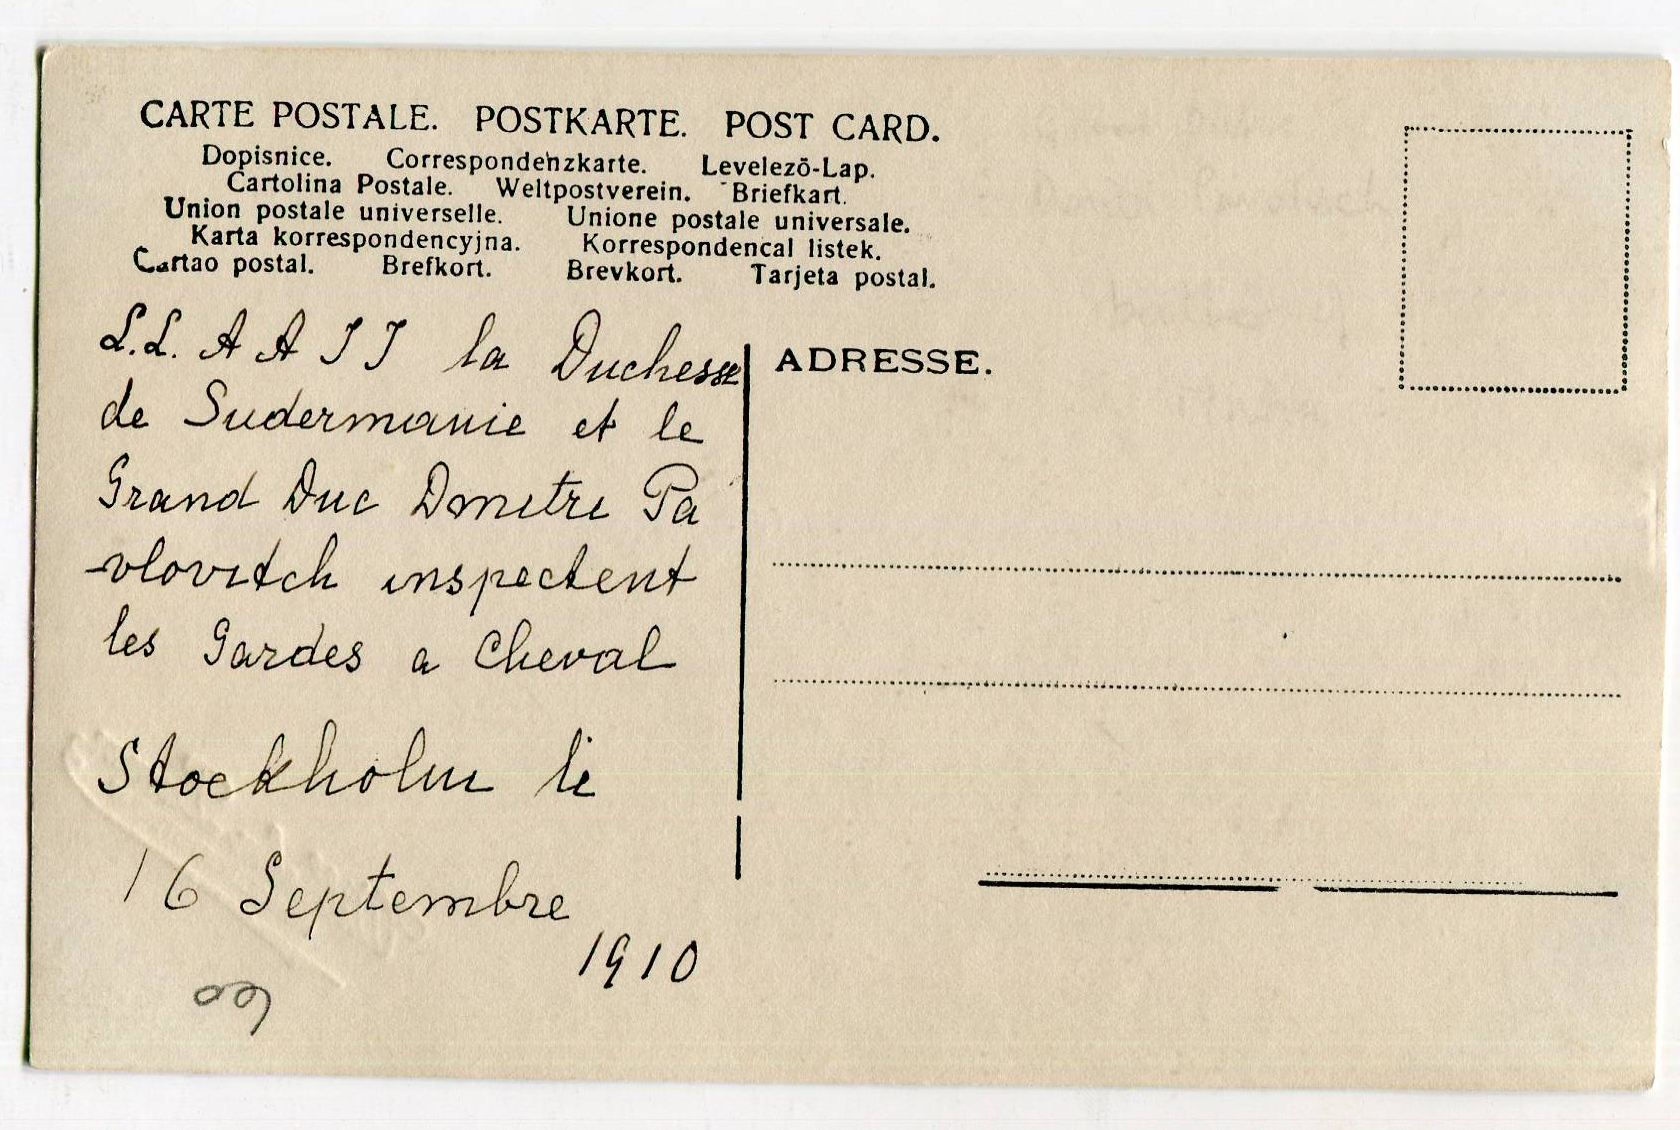 CARTE POSTALE. POSTKARTE. POST CARD.
Dopisnice. Correspondenzkarte. Levelezō-Lap.
Cartolina Postale. Weltpostverein. Briefkart.
Union postale universelle. Unione postale universale.
Karta korrespondencyjna. Korrespondencal listek.
Cartao postal. Brefkort. Brevkort. Tarjeta postal.
L.L. A A I I la Duchesse
de Sudermanie et le
Grand Duc Dmitri Pa
-vlovitch inspectent
les Gardes a Cheval
Stockholm le
16 Septembre
1910
ADRESSE.